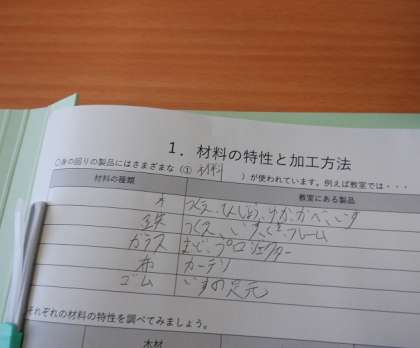 1．材料の特性と加工方法
○身の回りの製品にはさまざまな（① 材料 ）が使われています。例えば教室では・・・
材料の種類 教室にある製品
木 つくえ、ゆか、かべ、いす
鉄 つくえ、いす、フレーム
ガラス まど、プロジェクター
布 カーテン
ゴム いすの足元
それぞれの材料の特性を調べてみましょう。
木材